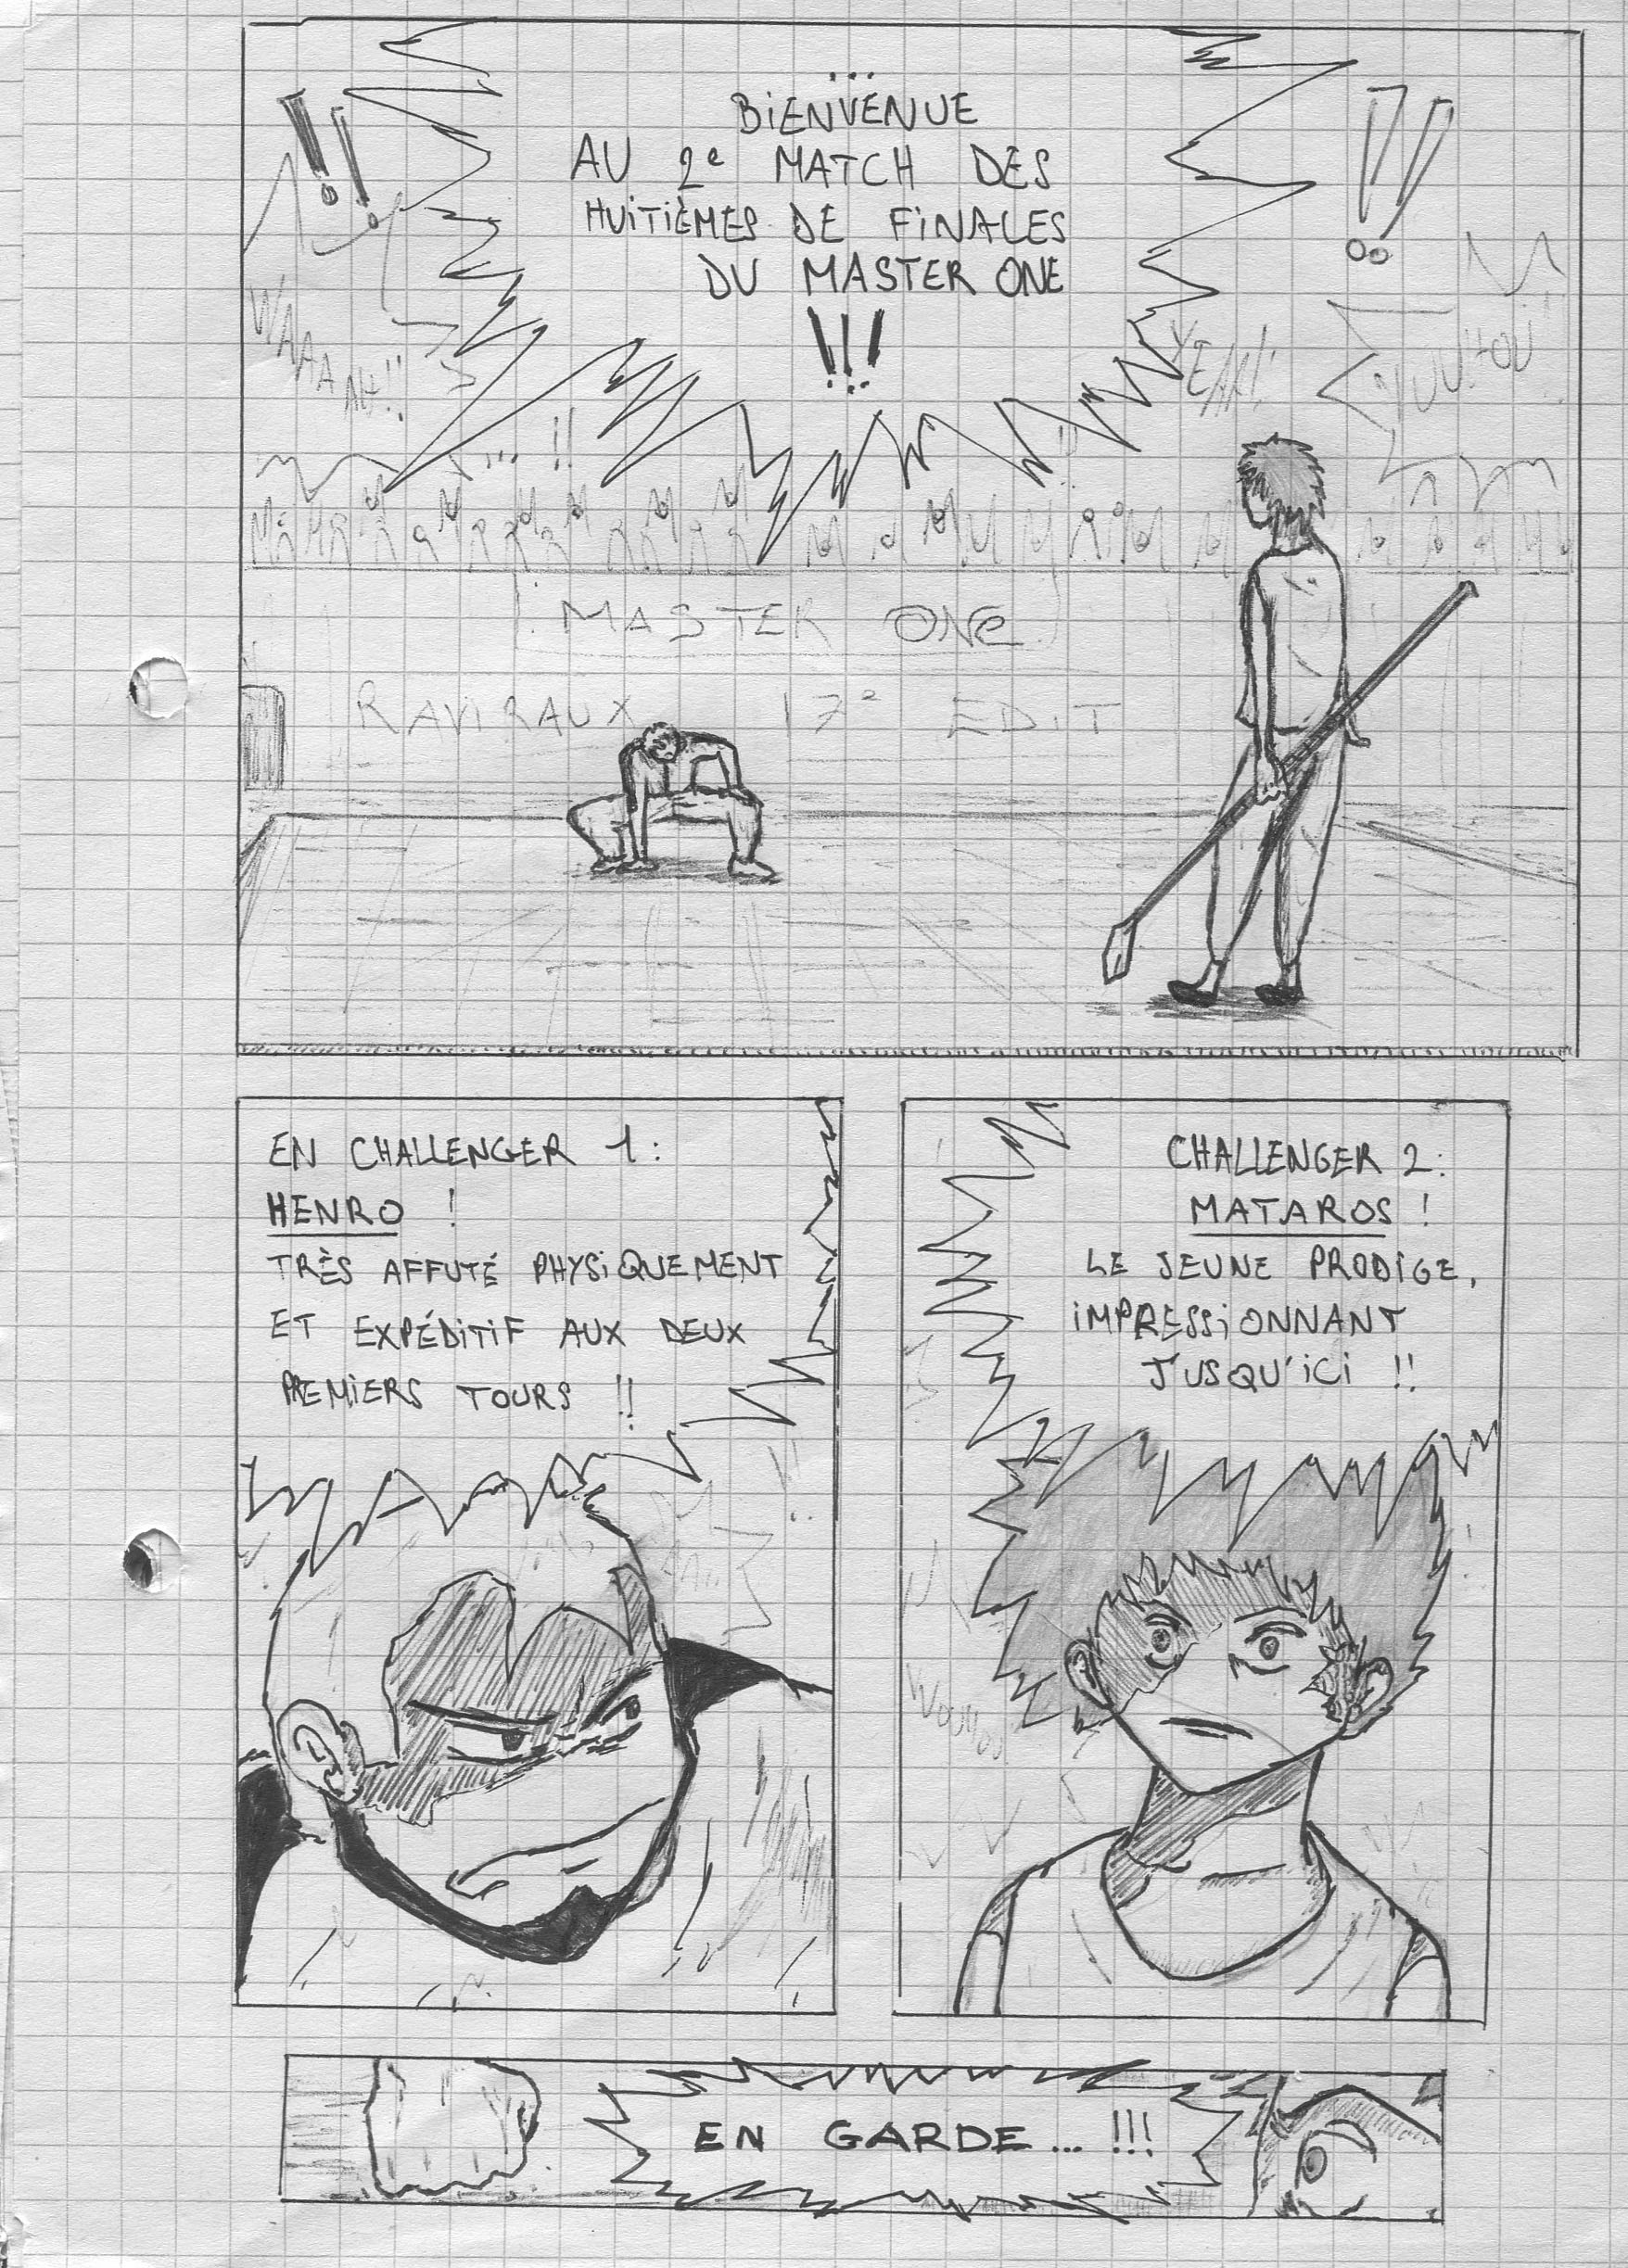 ...
BiENVENUE
AU 2e MATCH DES
HUiTiÈMES DE FiNALES
DU MASTER ONE
!!!
!!
!!
WAAAAAH!!
YEAH!
YUUHOU!!
!!
MASTER ONe
RAVIRAUX 17e EDIT
EN CHALLENGER 1:
HENRO !
TRÈS AFFUTÉ PHYSiQUEMENT
ET EXPÉDiTiF AUX DEUX
PREMiERS TOURS !!
CHALLENGER 2:
MATAROS !
LE JEUNE PRODiGE,
iMPRESSiONNANT
JUSQU'iCi !!
EN GARDE... !!!